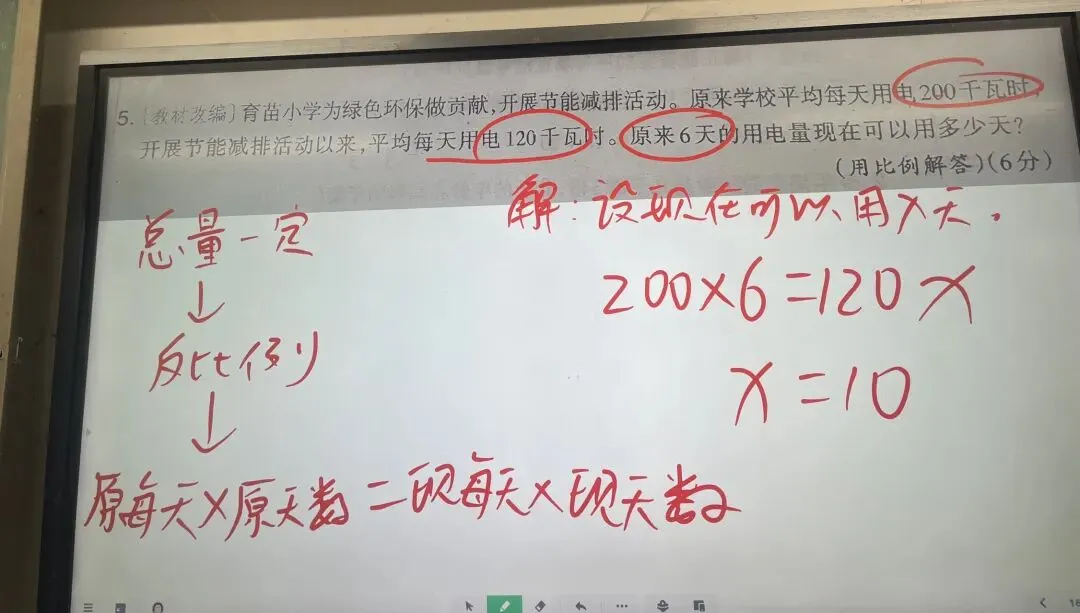 5. [教材改编]育苗小学为绿色环保做贡献,开展节能减排活动。原来学校平均每天用电200千瓦时,
开展节能减排活动以来,平均每天用电120千瓦时。原来6天的用电量现在可以用多少天?
(用比例解答)(6分)
解:设现在可以用x天.
200×6=120x
x=10
总量一定
↓
反比例
↓
原每天×原天数=现每天×现天数